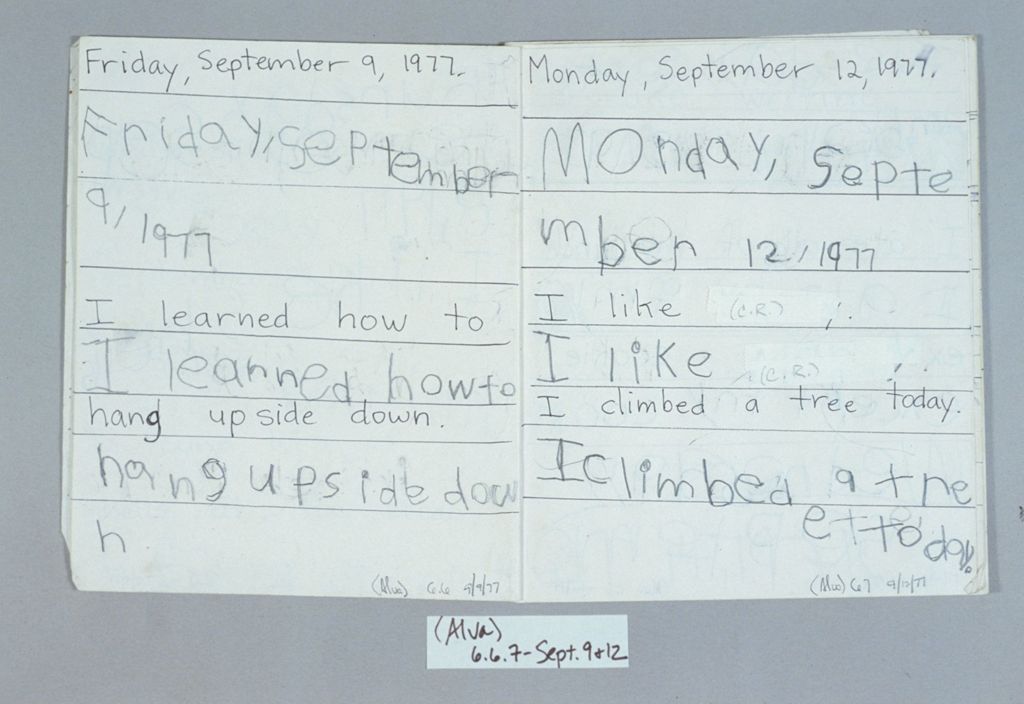 Friday, September 9, 1977.
Friday, September
9, 1977
I learned how to
I learned how to
hang upside down.
hang upside dow
n
(Alva) 6.6 9/9/77
Monday, September 12, 1977.
Monday, Septe
mber 12, 1977
I like (C.R.) ;.
I like (C.R.)
I climbed a tree today.
I climbed a tre
e ttoday.
(Alva) 6.7 9/12/77
(Alva)
6.6.7-Sept. 9+12